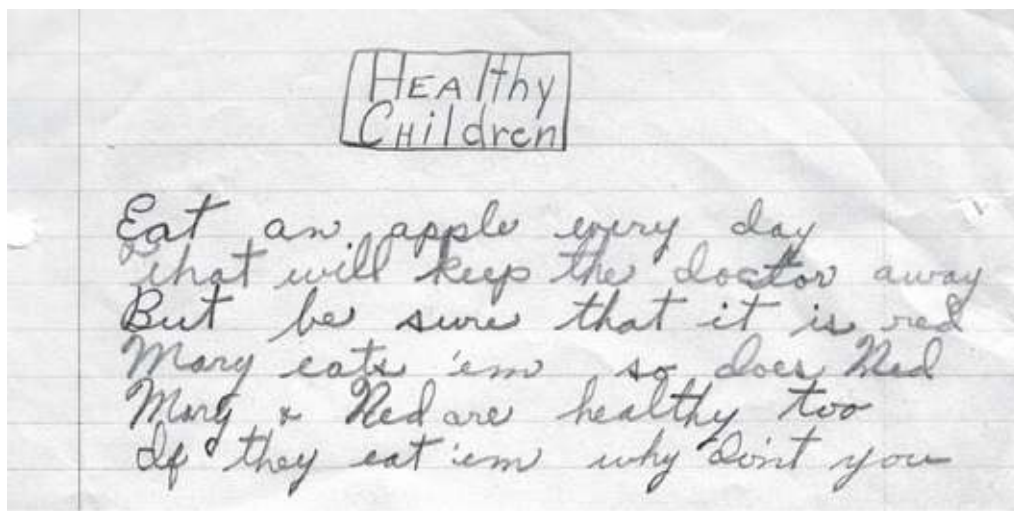 HEAlthy
CHildren
Eat an apple every day
That will keep the doctor away
But be sure that it is red
Mary eats 'em so does Ned
Mary & Ned are healthy too
If they eat 'em why don't you